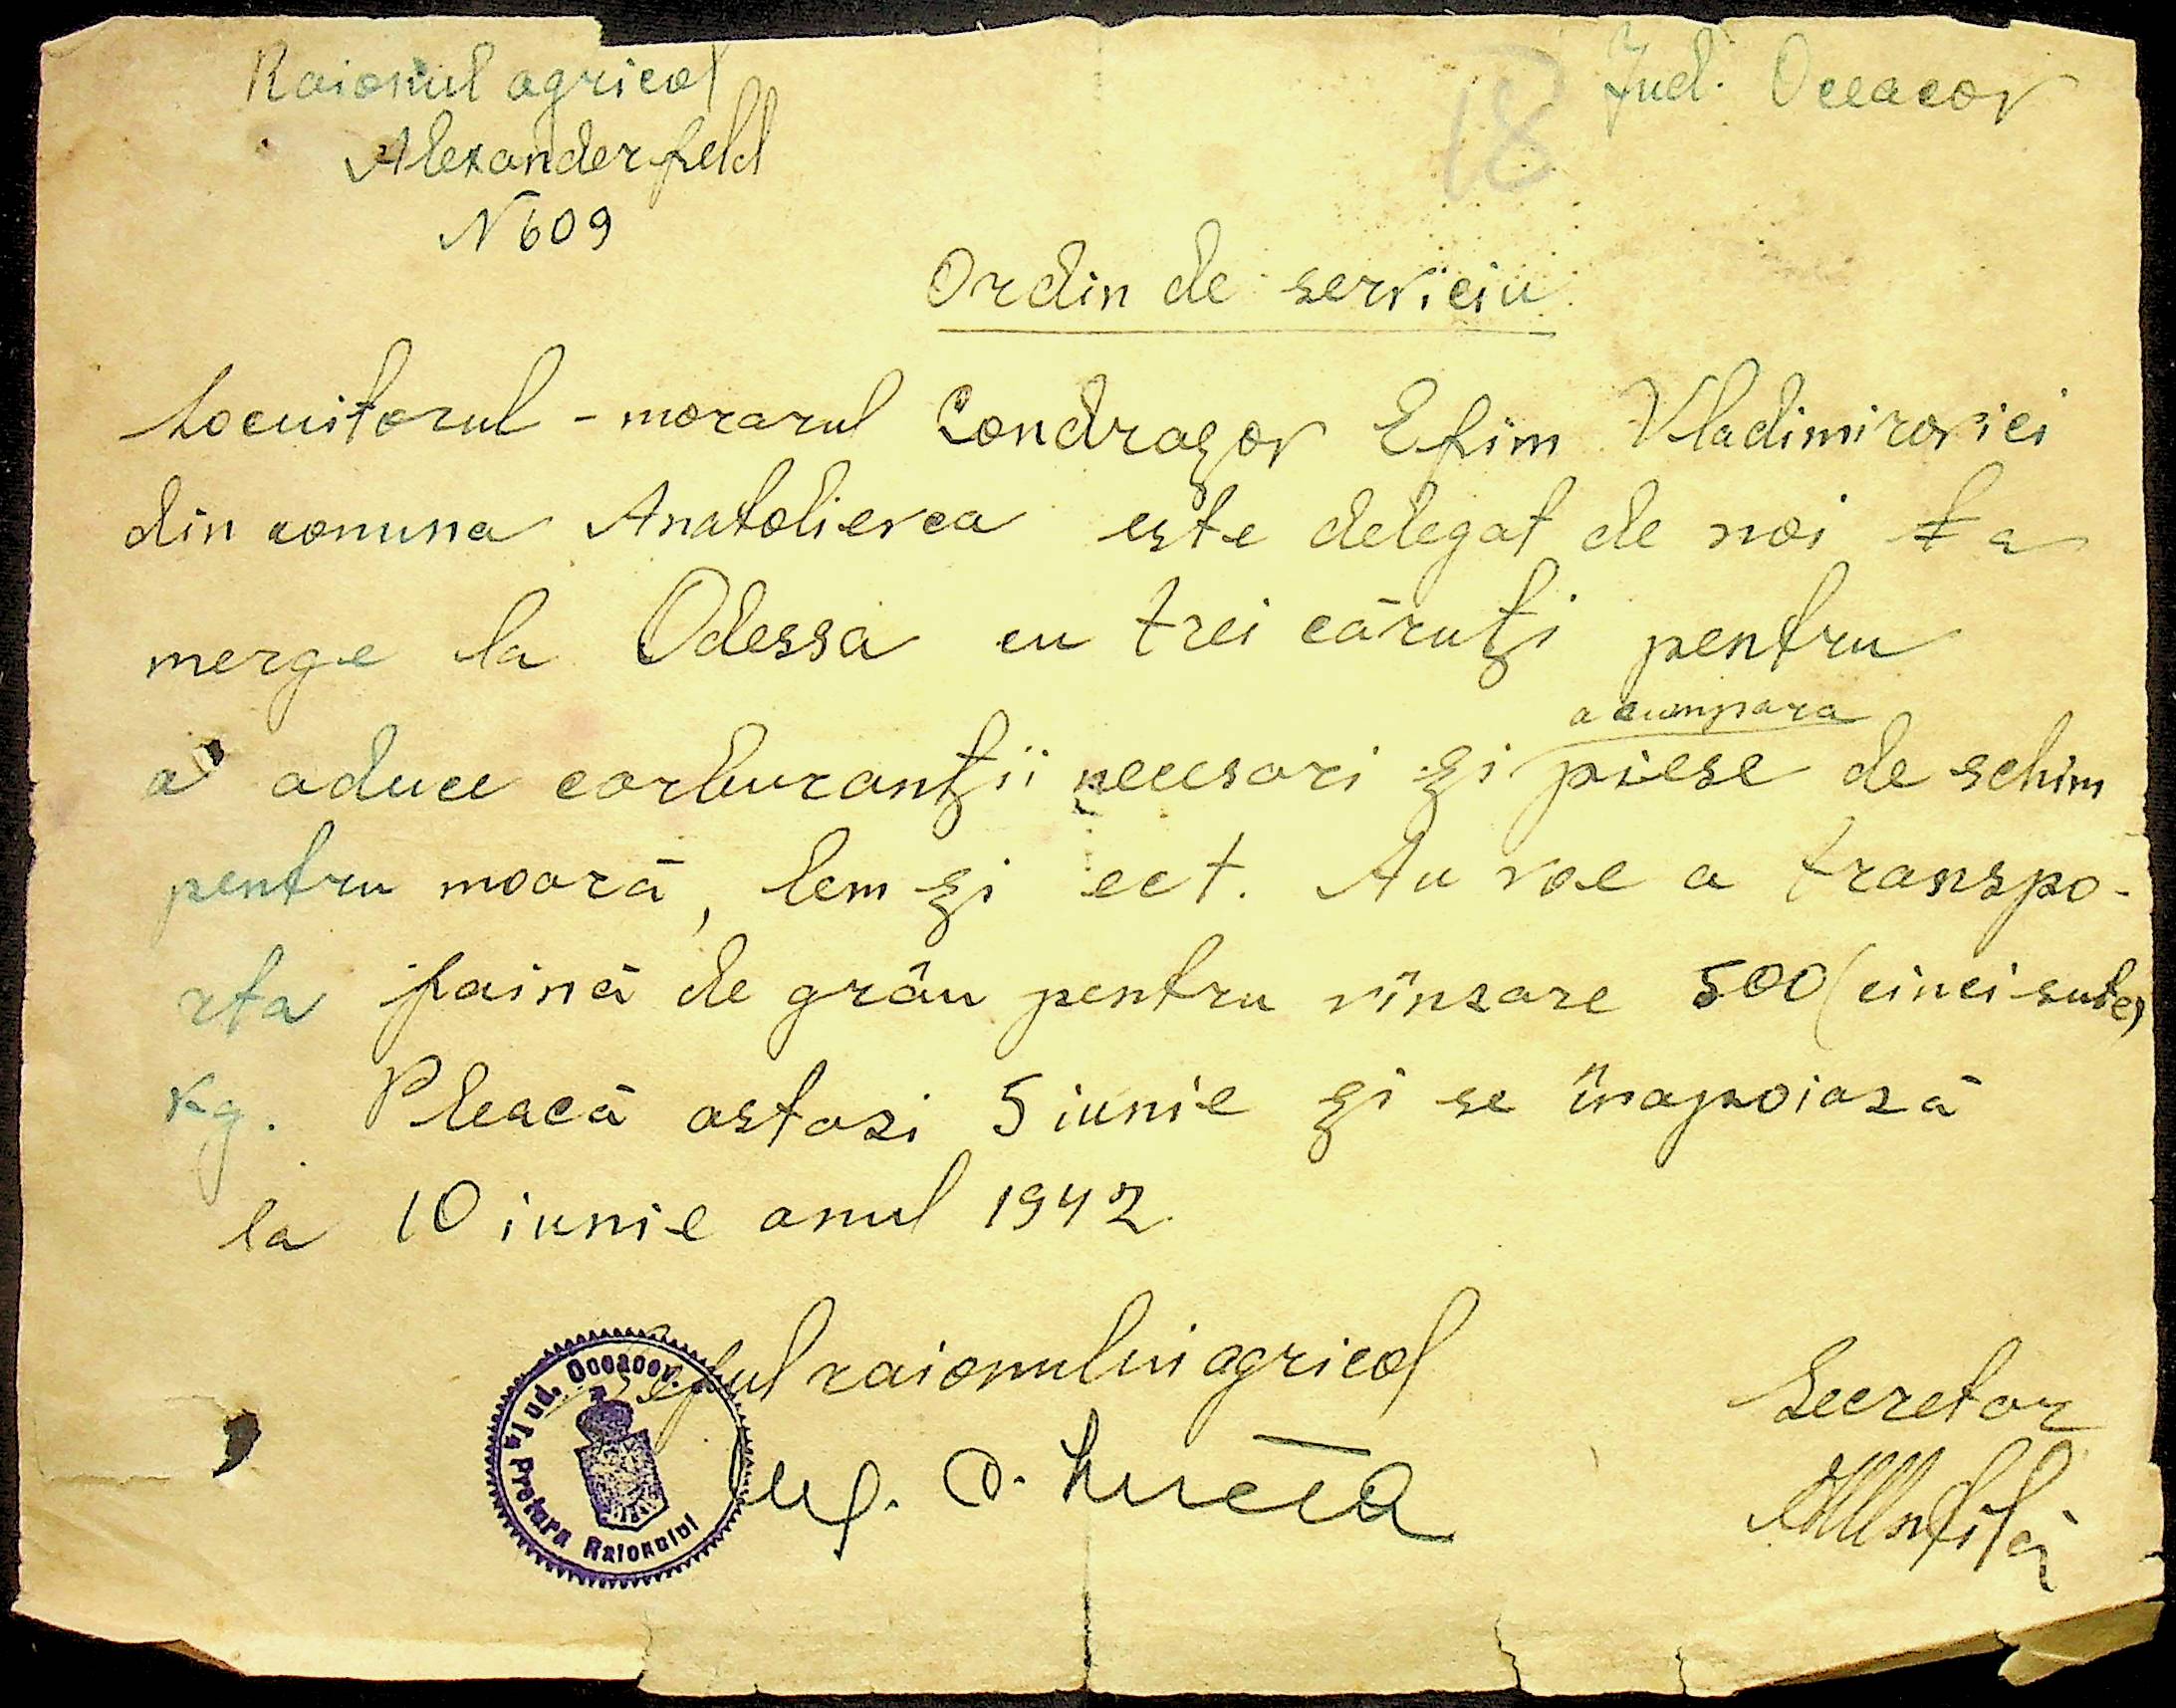 Raionul agricol
Jud. Oceacov
18
Alexanderfeld
N 609
Ordin de serviciu
Locuitorul - morarul Condrașov Efim Vladimirovici
din comuna Anatolievca este delegat de noi a
merge la Odessa cu trei căruți pentru
a cumpara
a aduce carburanții necesari și piese de schim
pentru moară, lemși ect. Au voe a transpo-
rta faină de grâu pentru vînzare 500 (cinci sute)
kg. Pleacă astazi 5 iunie și se înapoiază
la 10 iunie anul 1942
Șeful raionului agricol
Secretar
Jud. Oceacov. Pretura Raionului